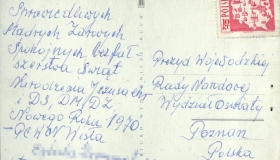 Sprawiedliwych
Mądrych Zdrowych
Spokojnych bez fał
szerstwa Świąt
Narodzenia Jezusa
i DS, DM/DZ
Nowego Roku 1970
Wisła
POLSKA
Prezyd Wojewódzkiej
Rady Narodowej
Wydział Oświaty
Poznań
Polska